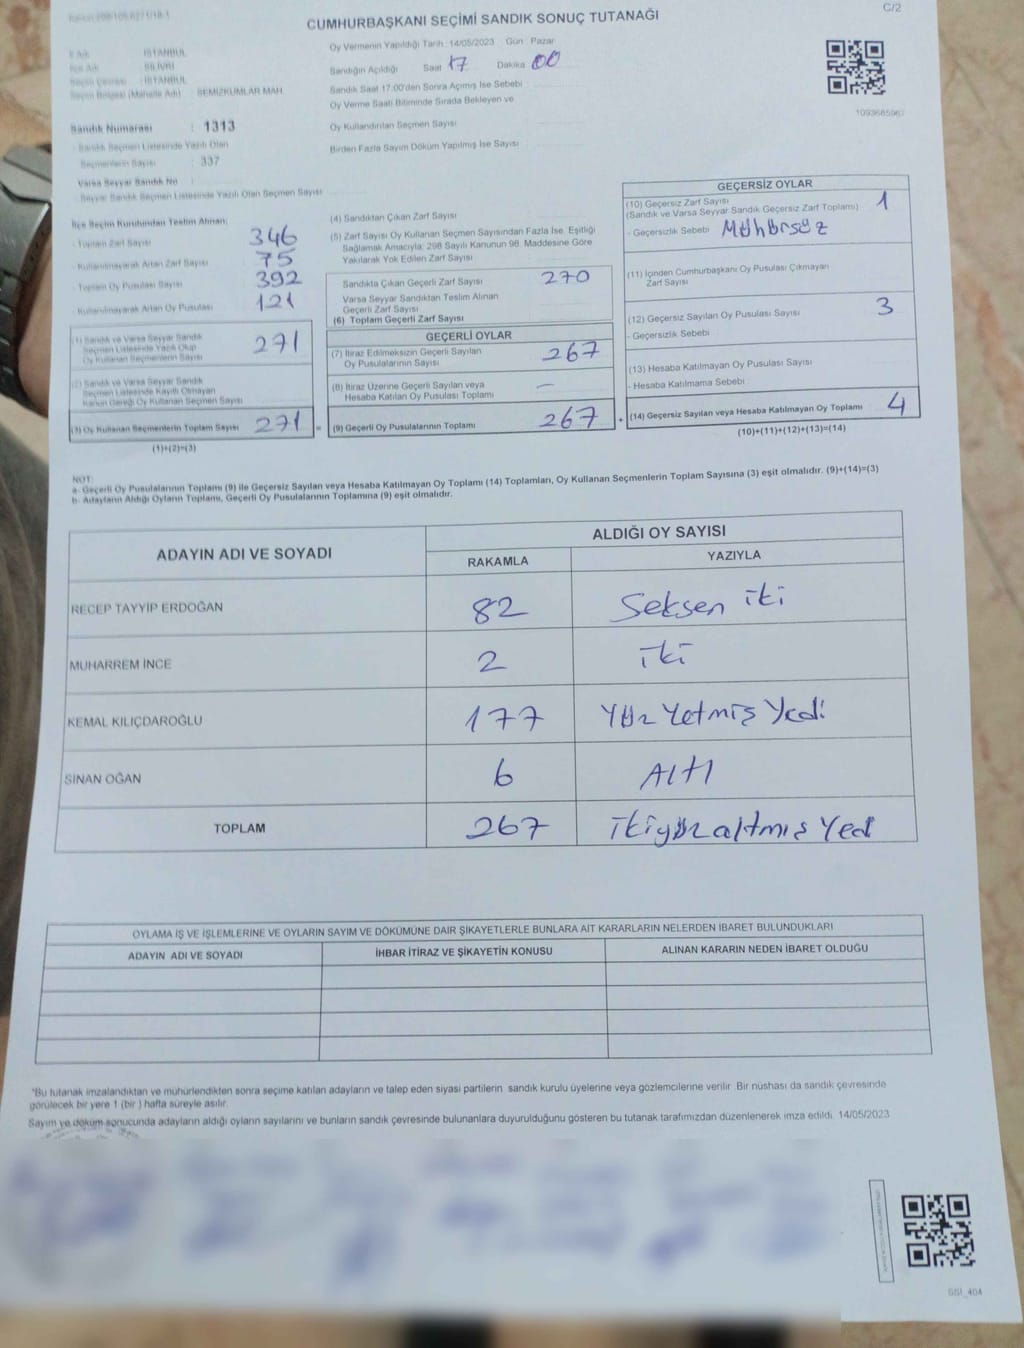 C/2
CUMHURBAŞKANI SEÇİMİ SANDIK SONUÇ TUTANAĞI
Oy Vermenin Yapıldığı Tarih : 14/05/2023 Gün : Pazar
Sandığın Açıldığı Saat 17 Dakika 00
Sandık Saat 17:00'den Sonra Açımış İse Sebebi
Oy Verme Saati Bitiminde Sırada Bekleyen ve
Oy Kullandırılan Seçmen Sayısı
Birden Fazla Sayım Döküm Yapılmış İse Sayısı
İl Adı : İSTANBUL
İlçe Adı : SİLİVRİ
Seçim Çevresi : İSTANBUL
SEMİZKUMLAR MAH.
Sandık Numarası : 1313
- Sandık Seçmen Listesinde Yazılı Olan
Seçmenlerin Sayısı : 337
Varsa Seyyar Sandık No :
- Seyyar Sandık Seçmen Listesinde Yazılı Olan Seçmen Sayısı
İlçe Seçim Kurulundan Teslim Alınan;
- Toplam Zarf Sayısı 346
- Kullanılmayarak Artan Zarf Sayısı 75
- Toplam Oy Pusulası Sayısı 392
- Kullanılmayarak Artan Oy Pusulası 121
(1) Sandık ve Varsa Seyyar Sandık
Seçmen Listesinde Yazılı Olup
Oy Kullanan Seçmenlerin Sayısı 271
(2) Sandık ve Varsa Seyyar Sandık
Seçmen Listesinde Kayıtlı Olmayan
Kanun Gereği Oy Kullanan Seçmen Sayısı
(3) Oy Kullanan Seçmenlerin Toplam Sayısı 271
(1)+(2)=(3)
(4) Sandıktan Çıkan Zarf Sayısı
(5) Zarf Sayısı Oy Kullanan Seçmen Sayısından Fazla İse, Eşitliği
Sağlamak Amacıyla; 298 Sayılı Kanunun 98. Maddesine Göre
Yakılarak Yok Edilen Zarf Sayısı
Sandıkta Çıkan Geçerli Zarf Sayısı 270
Varsa Seyyar Sandıktan Teslim Alınan
Geçerli Zarf Sayısı
(6) Toplam Geçerli Zarf Sayısı
GEÇERLİ OYLAR
(7) İtiraz Edilmeksizin Geçerli Sayılan
Oy Pusulalarının Sayısı 267
(8) İtiraz Üzerine Geçerli Sayılan veya
Hesaba Katılan Oy Pusulası Toplamı —
(9) Geçerli Oy Pusulalarının Toplamı 267
GEÇERSİZ OYLAR
(10) Geçersiz Zarf Sayısı
(Sandık ve Varsa Seyyar Sandık Geçersiz Zarf Toplamı) 1
- Geçersizlik Sebebi : Mühürsüz
(11) İçinden Cumhurbaşkanı Oy Pusulası Çıkmayan
Zarf Sayısı
(12) Geçersiz Sayılan Oy Pusulası Sayısı 3
- Geçersizlik Sebebi :
(13) Hesaba Katılmayan Oy Pusulası Sayısı
- Hesaba Katılmama Sebebi :
(14) Geçersiz Sayılan veya Hesaba Katılmayan Oy Toplamı 4
(10)+(11)+(12)+(13)=(14)
NOT:
a- Geçerli Oy Pusulalarının Toplamı (9) ile Geçersiz Sayılan veya Hesaba Katılmayan Oy Toplamı (14) Toplamları, Oy Kullanan Seçmenlerin Toplam Sayısına (3) eşit olmalıdır. (9)+(14)=(3)
b- Adayların Aldığı Oyların Toplamı, Geçerli Oy Pusulalarının Toplamına (9) eşit olmalıdır.
ADAYIN ADI VE SOYADI
ALDIĞI OY SAYISI
RAKAMLA YAZIYLA
RECEP TAYYİP ERDOĞAN 82 Seksen iki
MUHARREM İNCE 2 iki
KEMAL KILIÇDAROĞLU 177 Yüz Yetmiş Yedi
SİNAN OĞAN 6 Altı
TOPLAM 267 ikiyüz altmış Yedi
OYLAMA İŞ VE İŞLEMLERİNE VE OYLARIN SAYIM VE DÖKÜMÜNE DAİR ŞİKAYETLERLE BUNLARA AİT KARARLARIN NELERDEN İBARET BULUNDUKLARI
ADAYIN ADI VE SOYADI İHBAR İTİRAZ VE ŞİKAYETİN KONUSU ALINAN KARARIN NEDEN İBARET OLDUĞU
"Bu tutanak imzalandıktan ve mühürlendikten sonra seçime katılan adayların ve talep eden siyasi partilerin sandık kurulu üyelerine veya gözlemcilerine verilir. Bir nüshası da sandık çevresinde
görülecek bir yere 1 (bir ) hafta süreyle asılır.
Sayım ve döküm sonucunda adayların aldığı oyların sayılarını ve bunların sandık çevresinde bulunanlara duyurulduğunu gösteren bu tutanak tarafımızdan düzenlenerek imza edildi. 14/05/2023